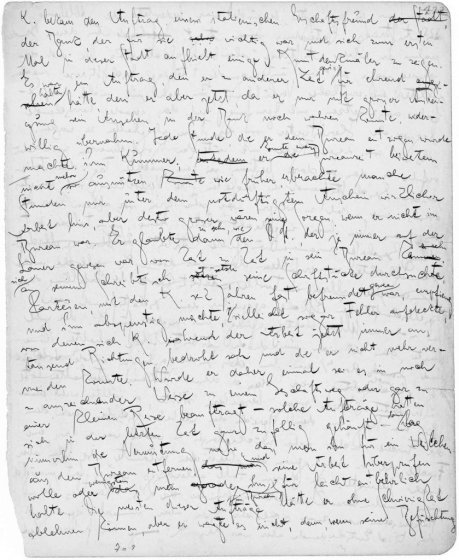 K. bekam den Auftrag einem italienischen Geschäftsfreund
der Bank der für sie sehr wichtig war und sich zum ersten
Mal in dieser Stadt aufhielt einige Kunstdenkmäler zu zeigen.
Es war ein Auftrag, den er zu anderer Zeit gewiß für ehrend
hätte den er aber jetzt da er nur mit großer Anstren-
gung sein Ansehen in der Bank noch wahren konnte, wider-
willig übernahm. Jede Stunde die er dem Bureau entzogen wurde
machte ihm Kummer; er konnte zwar die Bureauzeit bei weitem
nicht mehr so ausnützen wie früher er brachte manche
Stunden nur unter dem notdürftigsten Anschein wirklicher
Arbeit hin, aber desto größer waren seine Sorgen wenn er nicht im
Bureau war. Er glaubte dann zu sehn, wie der, der ja immer auf der
Lauer gewesen war von Zeit zu Zeit in sein Bureau
sich an seinen Schreibtisch setzte seine Schriftstücke durchsuchte
Parteien, mit denen K. seit Jahren fast befreundet gewesen war, empfing
und ihm abspenstig machte, vielleicht sogar Fehler aufdeckte,
von denen sich K. während der Arbeit jetzt immer aus
tausend Richtungen bedroht sah und die er nicht mehr ver-
meiden konnte. Wurde er daher einmal sei es in noch
so auszeichnender Weise zu einem Geschäftsweg oder gar zu
einer kleinen Reise beauftragt – solche Aufträge hatten
sich in der letzten Zeit ganz zufällig gehäuft – dann lag
immerhin die Vermutung nahe daß man ihn für ein Weilchen
aus dem Bureau entfernen und seine Arbeit überprüfen
wolle oder wenigstens man ihn für leicht entbehrlich
halte Die meisten dieser Aufträge hätte er ohne Schwierigkeit
ablehnen können, aber er wagte es nicht, denn wenn seine Befürchtung